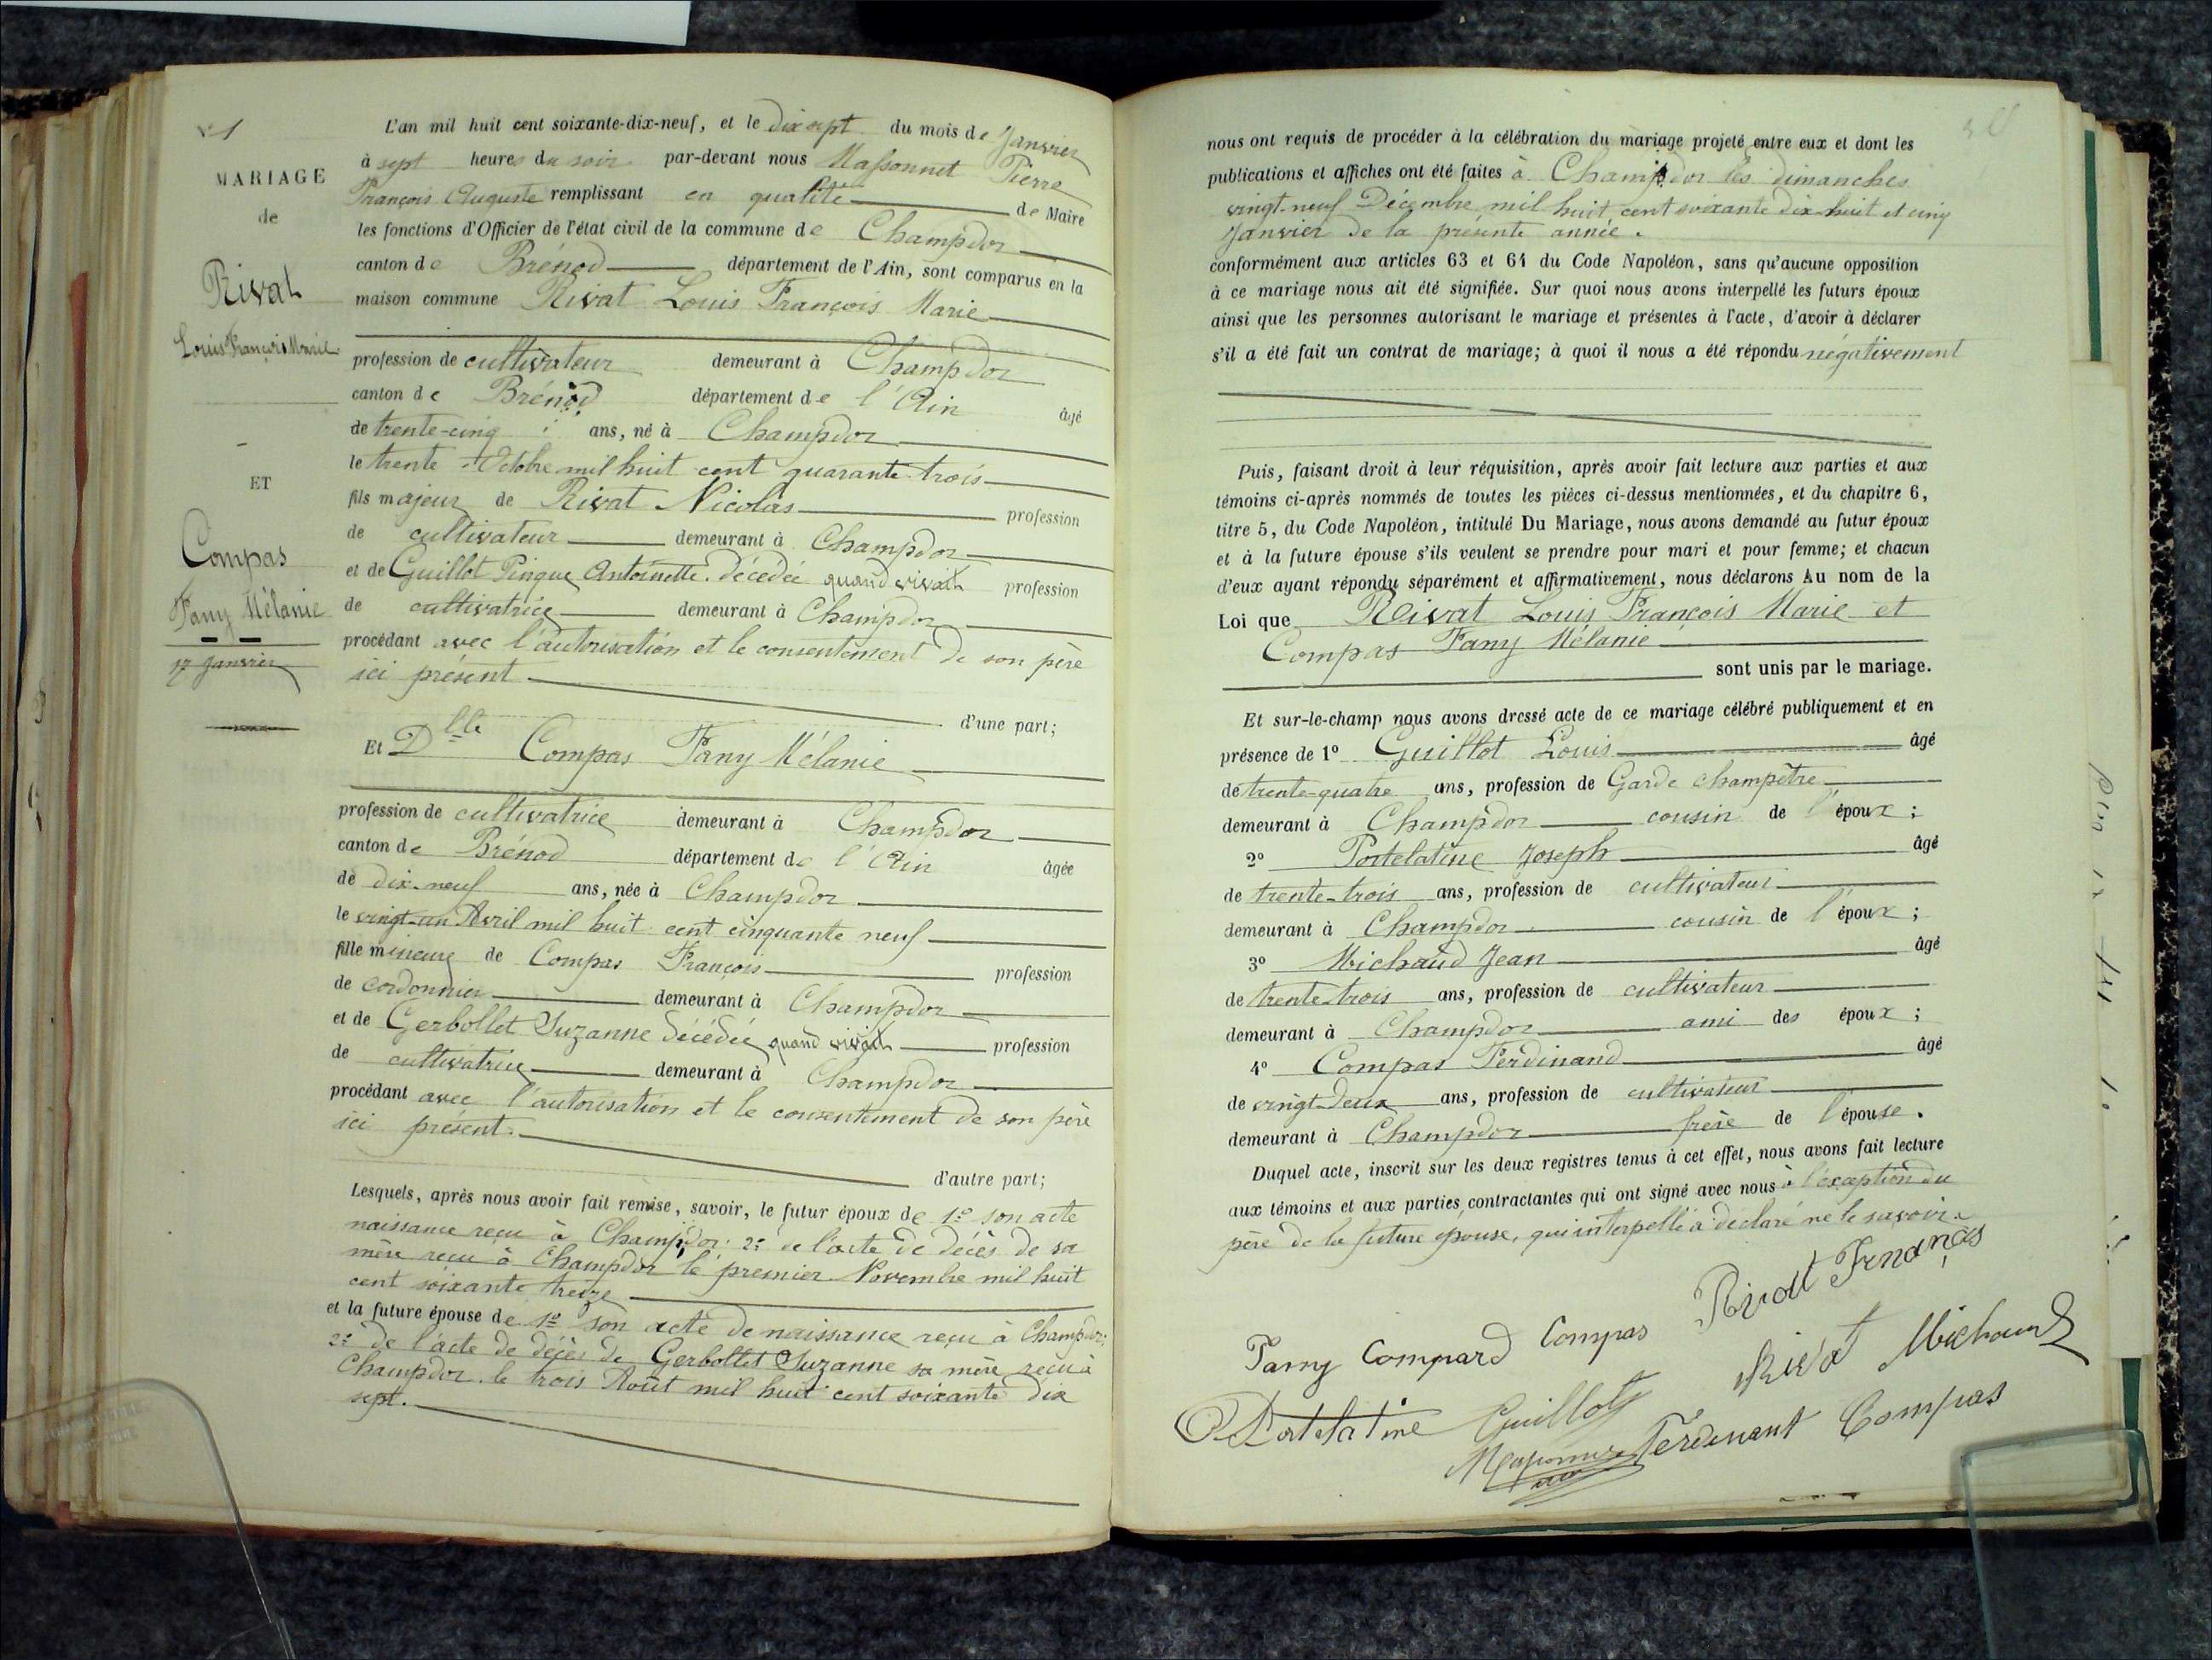 N° 1
MARIAGE
de
Rivat
Louis François Marie
ET
Compas
Fany Mélanie
17 Janvier
L'an mil huit cent soixante-dix-neuf, et le dix sept du mois de Janvier
à sept heures du soir par-devant nous Massonnet Pierre
François Auguste remplissant en qualité de Maire
les fonctions d'Officier de l'état civil de la commune de Champdor
canton de Brénod département de l'Ain, sont comparus en la
maison commune Rivat Louis François Marie
profession de cultivateur demeurant à Champdor
canton de Brénod département de l'Ain âgé
de trente-cinq ans, né à Champdor
le trente Octobre mil huit cent quarante trois
fils majeur de Rivat Nicolas profession
de cultivateur demeurant à Champdor
et de Guillot Pingue Antoinette décédée quand vivait profession
de cultivatrice demeurant à Champdor
procédant avec l'autorisation et le consentement de son père
ici présent
d'une part;
Et Dlle Compas Fany Mélanie
profession de cultivatrice demeurant à Champdor
canton de Brénod département de l'Ain âgée
de dix-neuf ans, née à Champdor
le vingt-un Avril mil huit cent cinquante neuf
fille mineure de Compas François profession
de cordonnier demeurant à Champdor
et de Gerbollet Suzanne décédée quand vivait profession
de cultivatrice demeurant à Champdor
procédant avec l'autorisation et le consentement de son père
ici présent.
d'autre part;
Lesquels, après nous avoir fait remise, savoir, le futur époux de 1° son acte
naissance reçu à Champdor: 2° de l'acte de décès de sa
mère reçu à Champdor le premier Novembre mil huit
cent soixante treize
et la future épouse de 1° son acte de naissance reçu à Champdor:
2° de l'acte de décès de Gerbollet Suzanne sa mère reçu à
Champdor le trois Août mil huit cent soixante dix
sept.
nous ont requis de procéder à la célébration du mariage projeté entre eux et dont les
publications et affiches ont été faites à Champdor les dimanches
vingt-neuf Décembre mil huit cent soixante dix-huit et cinq
Janvier de la présente année.
conformément aux articles 63 et 64 du Code Napoléon, sans qu'aucune opposition
à ce mariage nous ait été signifiée. Sur quoi nous avons interpellé les futurs époux
ainsi que les personnes autorisant le mariage et présentes à l'acte, d'avoir à déclarer
s'il a été fait un contrat de mariage; à quoi il nous a été répondu négativement
Puis, faisant droit à leur réquisition, après avoir fait lecture aux parties et aux
témoins ci-après nommés de toutes les pièces ci-dessus mentionnées, et du chapitre 6,
titre 5, du Code Napoléon, intitulé Du Mariage, nous avons demandé au futur époux
et à la future épouse s'ils veulent se prendre pour mari et pour femme; et chacun
d'eux ayant répondu séparément et affirmativement, nous déclarons Au nom de la
Loi que Rivat Louis François Marie et
Compas Fany Mélanie
sont unis par le mariage.
Et sur-le-champ nous avons dressé acte de ce mariage célébré publiquement et en
présence de 1° Guillot Louis âgé
de trente-quatre ans, profession de Garde champêtre
demeurant à Champdor cousin de l'époux;
2° Portelatine Joseph âgé
de trente-trois ans, profession de cultivateur
demeurant à Champdor cousin de l'époux;
3° Michaud Jean âgé
de trente-trois ans, profession de cultivateur
demeurant à Champdor ami des époux;
4° Compas Ferdinand âgé
de vingt-deux ans, profession de cultivateur
demeurant à Champdor frère de l'épouse.
Duquel acte, inscrit sur les deux registres tenus à cet effet, nous avons fait lecture
aux témoins et aux parties contractantes qui ont signé avec nous à l'exception du
père de la future épouse, qui interpellé a déclaré ne le savoir.
Fany Compard Compas Rivat Franançois
Rivat Michaud
Portelatine Guillot
Massonnet Ferdinant Compas